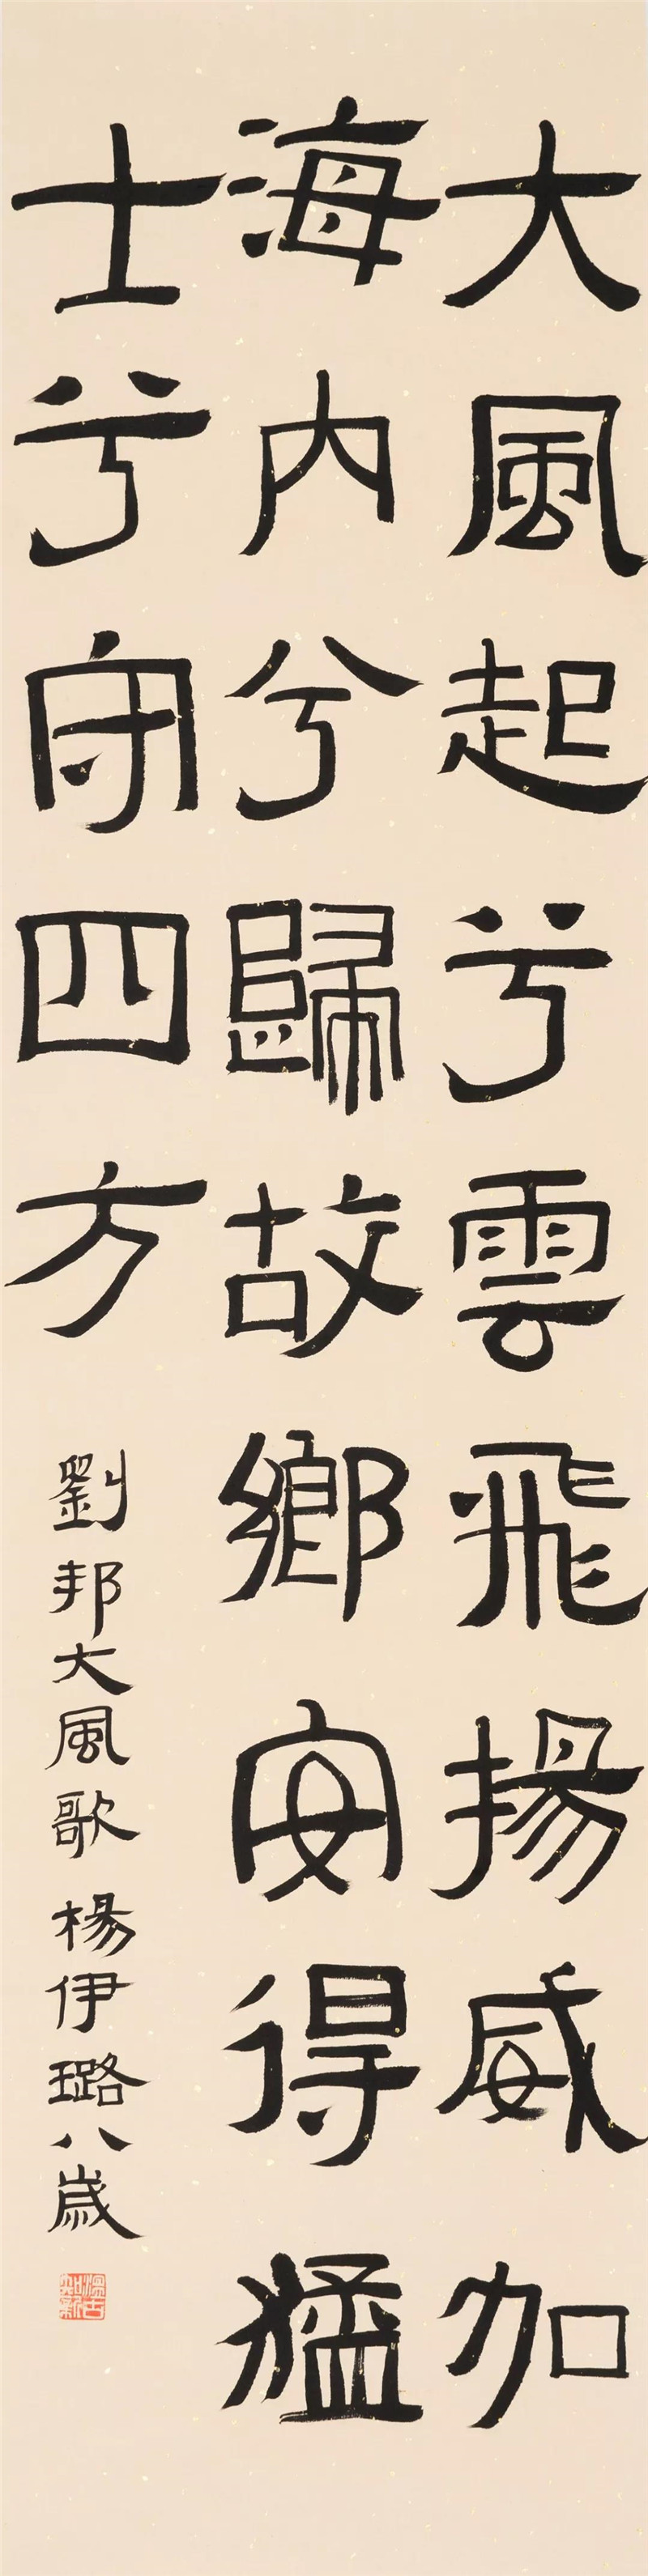 大風起兮雲飛揚威加
海内兮歸故鄉安得猛
士兮守四方
劉邦大風歌 楊伊璐八歲